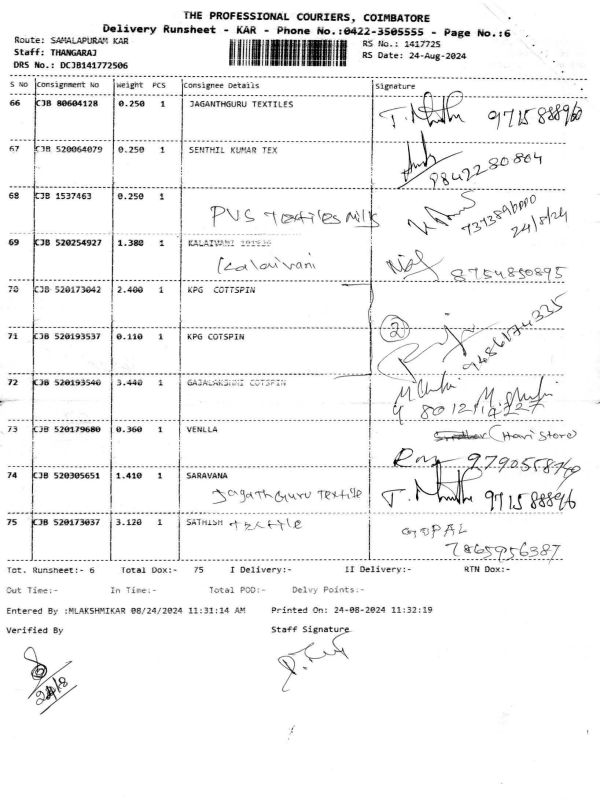 THE PROFESSIONAL COURIERS, COIMBATORE
Delivery Runsheet - KAR - Phone No.:0422-3505555 - Page No.:6
Route: SAMALAPURAM KAR RS No.: 1417725
Staff: THANGARAJ RS Date: 24-Aug-2024
DRS No.: DCJB141772506
S No Consignment No Weight PCS Consignee Details Signature
66 CJB 80604128 0.250 1 JAGANTHGURU TEXTILES
67 CJB 520064079 0.250 1 SENTHIL KUMAR TEX
9842280804
68 CJB 1537463 0.250 1
PVS Textiles Milk
24/8/24
69 CJB 520254927 1.380 1 KALAIVANI
Kalaivani 8754850895
70 CJB 520173042 2.400 1 KPG COTTSPIN
2
9486174335
71 CJB 520193537 0.110 1 KPG COTSPIN
72 CJB 520193540 3.440 1 GAJALAKSHMI COTSPIN
73 CJB 520179680 0.360 1 VENLLA
(Hari Store)
74 CJB 520305651 1.410 1 SARAVANA
Jagath Guru Textile
75 CJB 520173037 3.120 1 SATHISH textile
GOPAL
7865956387
Tot. Runsheet:- 6 Total Dox:- 75 I Delivery:- II Delivery:- RTN Dox:-
Out Time:- In Time:- Total POD:- Delvy Points:-
Entered By :MLAKSHMIKAR 08/24/2024 11:31:14 AM Printed On: 24-08-2024 11:32:19
Verified By Staff Signature
24/8